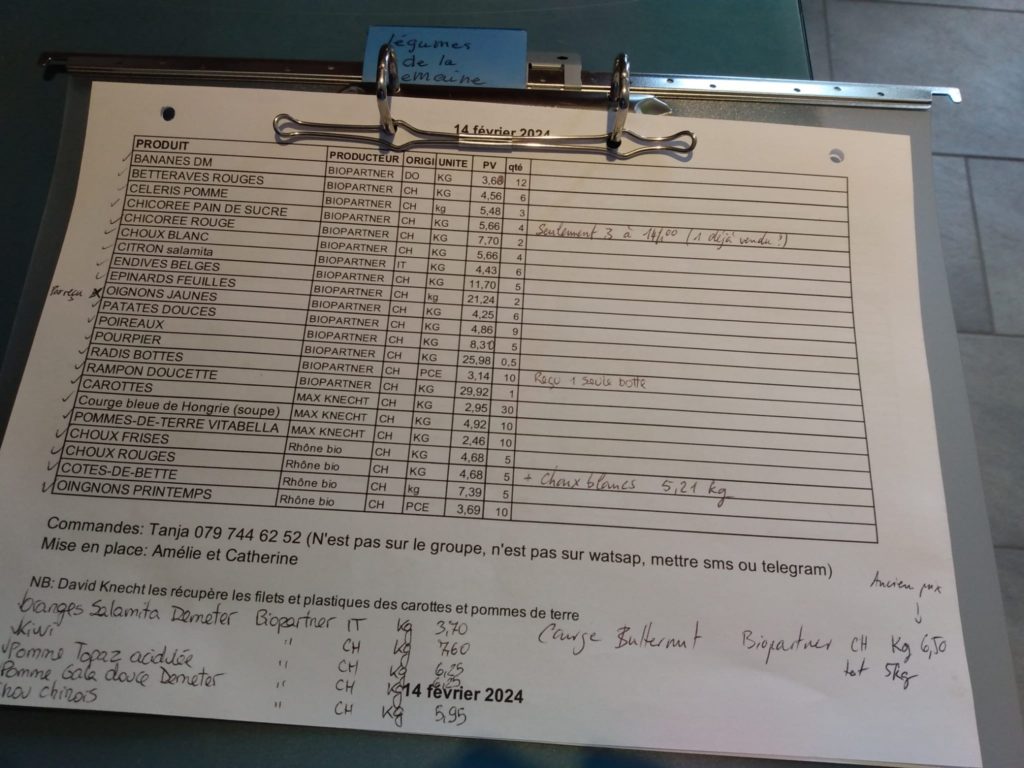 légumes
de la
emaine
14 février 2024
PRODUIT PRODUCTEUR ORIGI UNITE PV qté
BANANES DM BIOPARTNER DO KG 3,68 12
BETTERAVES ROUGES BIOPARTNER CH KG 4,56 6
CELERIS POMME BIOPARTNER CH kg 5,48 3
CHICOREE PAIN DE SUCRE BIOPARTNER CH KG 5,66 4 Seulement 3 à 14h00 (1 déjà vendu ?)
CHICOREE ROUGE BIOPARTNER CH KG 7,70 2
CHOUX BLANC BIOPARTNER CH KG 5,66 4
CITRON salamita BIOPARTNER IT KG 4,43 6
ENDIVES BELGES BIOPARTNER CH KG 11,70 5
EPINARDS FEUILLES BIOPARTNER CH kg 21,24 2
Pas reçu OIGNONS JAUNES BIOPARTNER CH KG 4,25 6
PATATES DOUCES BIOPARTNER CH KG 4,86 9
POIREAUX BIOPARTNER CH KG 8,31 5
POURPIER BIOPARTNER CH KG 25,98 0,5
RADIS BOTTES BIOPARTNER CH PCE 3,14 10 Reçu 1 seule botte
RAMPON DOUCETTE BIOPARTNER CH KG 29,92 1
CAROTTES MAX KNECHT CH KG 2,95 30
Courge bleue de Hongrie (soupe) MAX KNECHT CH KG 4,92 10
POMMES-DE-TERRE VITABELLA MAX KNECHT CH KG 2,46 10
CHOUX FRISES Rhône bio CH KG 4,68 5
CHOUX ROUGES Rhône bio CH KG 4,68 5 + Choux blancs 5,21 kg
COTES-DE-BETTE Rhône bio CH kg 7,39 5
OINGNONS PRINTEMPS Rhône bio CH PCE 3,69 10
Commandes: Tanja 079 744 62 52 (N'est pas sur le groupe, n'est pas sur watsap, mettre sms ou telegram)
Mise en place: Amélie et Catherine
NB: David Knecht les récupère les filets et plastiques des carottes et pommes de terre
Oranges Salamita Demeter Biopartner IT kg 3,70
Kiwi " CH kg 7,60
Pomme Topaz acidulée " CH kg 6,25
Pomme Gala douce Demeter " CH kg 6,25
hou chinois " CH kg 5,95
Ancien prix
Courge Butternut Biopartner CH Kg 6,50
tot 5kg
14 février 2024